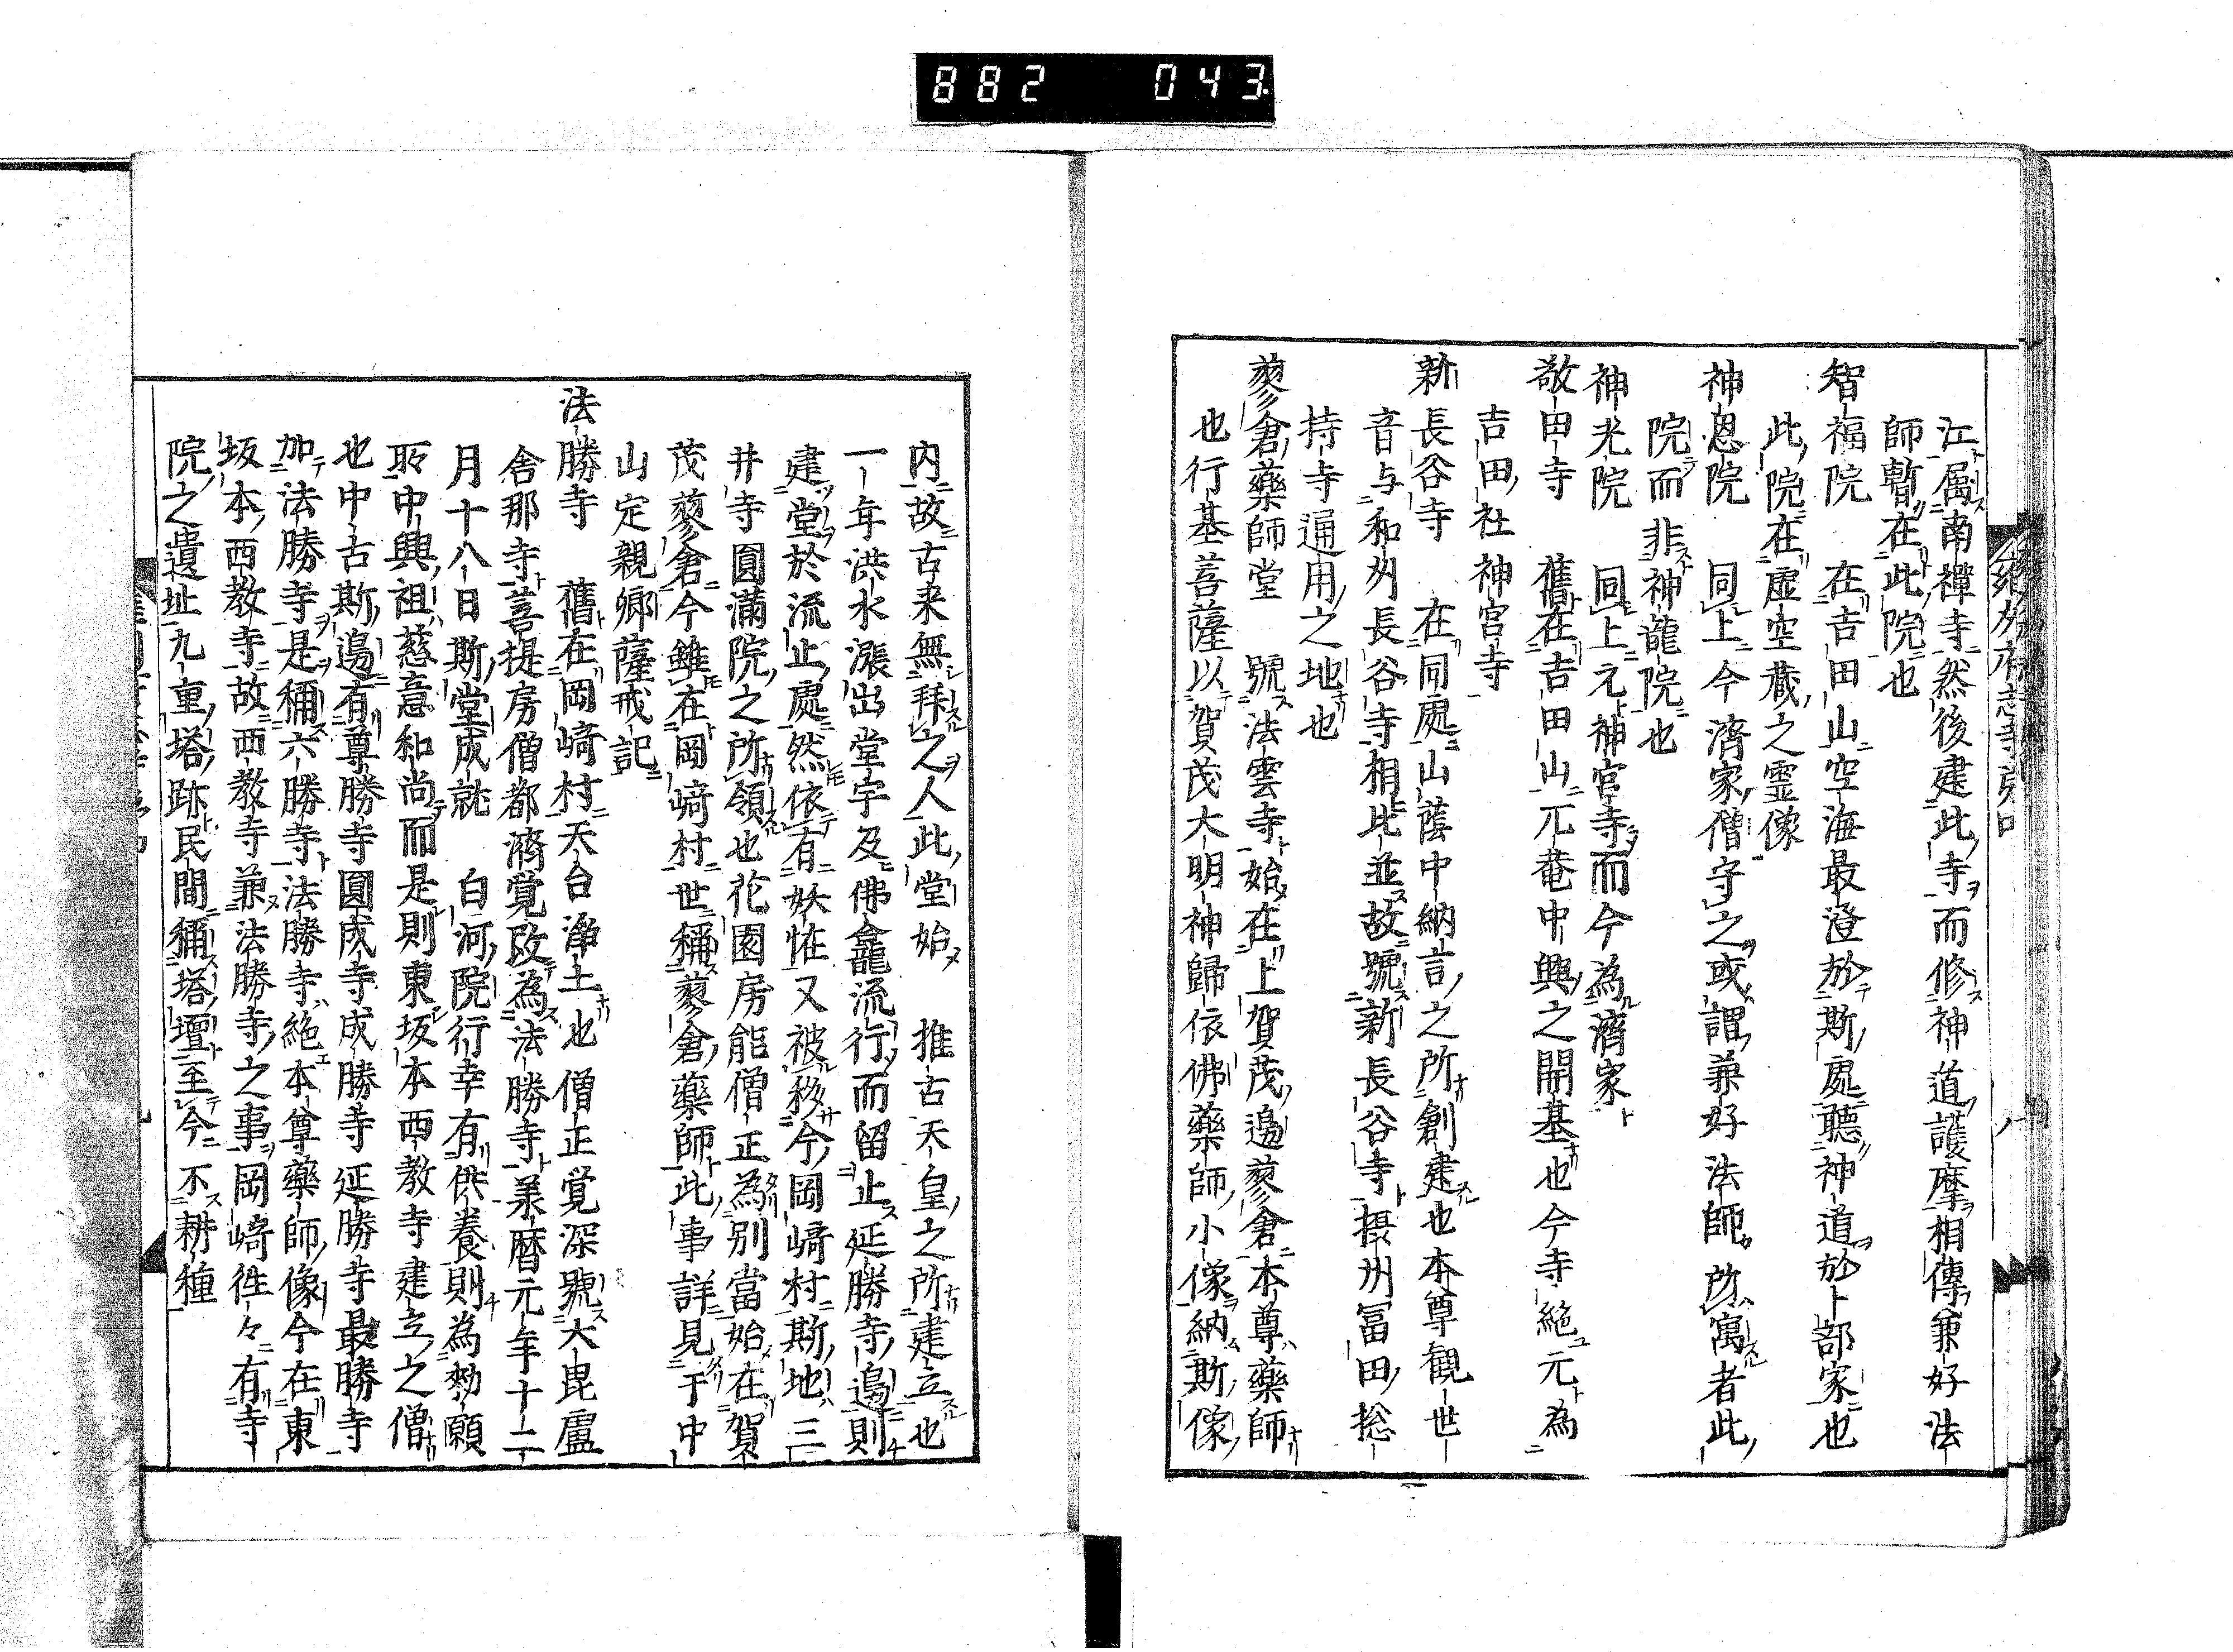 882 043
江属南禪寺然後建此寺而修神道護摩相傳兼好法
師暫在此院也
智福院 在吉田山空海最澄於斯處聽神道於卜部家也
此院在虚空藏之霊像
神恩院 同上今濟家僧守之或謂兼好法師所寓者此
院而非神龍院也
神光院 同上元神宮寺而今為濟家
敬田寺 舊在吉田山元菴中興之開基也今寺絶元為
吉田社神宮寺
新長谷寺 在同處山蔭中納言之所創建也本尊観世
音与和刕長谷寺相比並故號新長谷寺摂州冨田捴
持寺通用之地也
蓼倉藥師堂 號法雲寺始在上賀茂邉蓼倉本尊藥師
也行基菩薩以賀茂大明神歸依佛藥師小像納斯像
内故古来無拜之人此堂始 推古天皇之所建立也
一年洪水漲出堂宇及佛龕流行而留止延勝寺邉則
建堂於流止處然依有妖恠又被移今岡﨑村斯地三
井寺圓滿院之所領也花園房能僧正為别當始在賀
茂蓼倉今雖在岡﨑村世稱蓼倉藥師此事詳見于中
山定親卿薩戒記
法勝寺 舊在岡﨑村天台浄土也僧正覚深號大毘盧
舎那寺菩提房僧都濟覚改為法勝寺兼暦元年十二
月十八日斯堂成就 白河院行幸有供養則為勅願
所中興祖慈意和尚而是則東坂本西教寺建立之僧
也中古斯邉有尊勝寺圓成寺成勝寺延勝寺最勝寺
加法勝寺是稱六勝寺法勝寺絶本尊藥師像今在東
坂本西教寺故西教寺兼法勝寺之事岡﨑徃々有寺
院之遺址九重塔跡民間稱塔壇至今不耕種